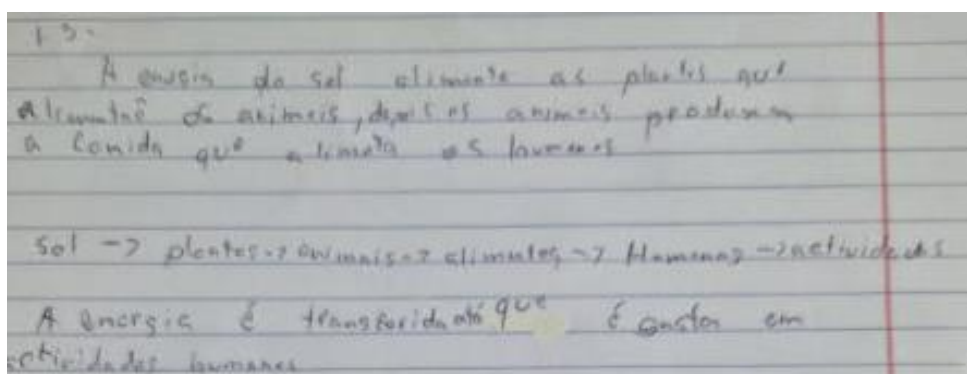 13.
A energia do sol alimenta as plantas que
alimentão os animais, depois os animais produzem
a comida que alimenta os humanos
Sol -> plantas -> animais -> alimentos -> Humanos -> actividades
A energia é transferida até que é gasta em
actividades humanas